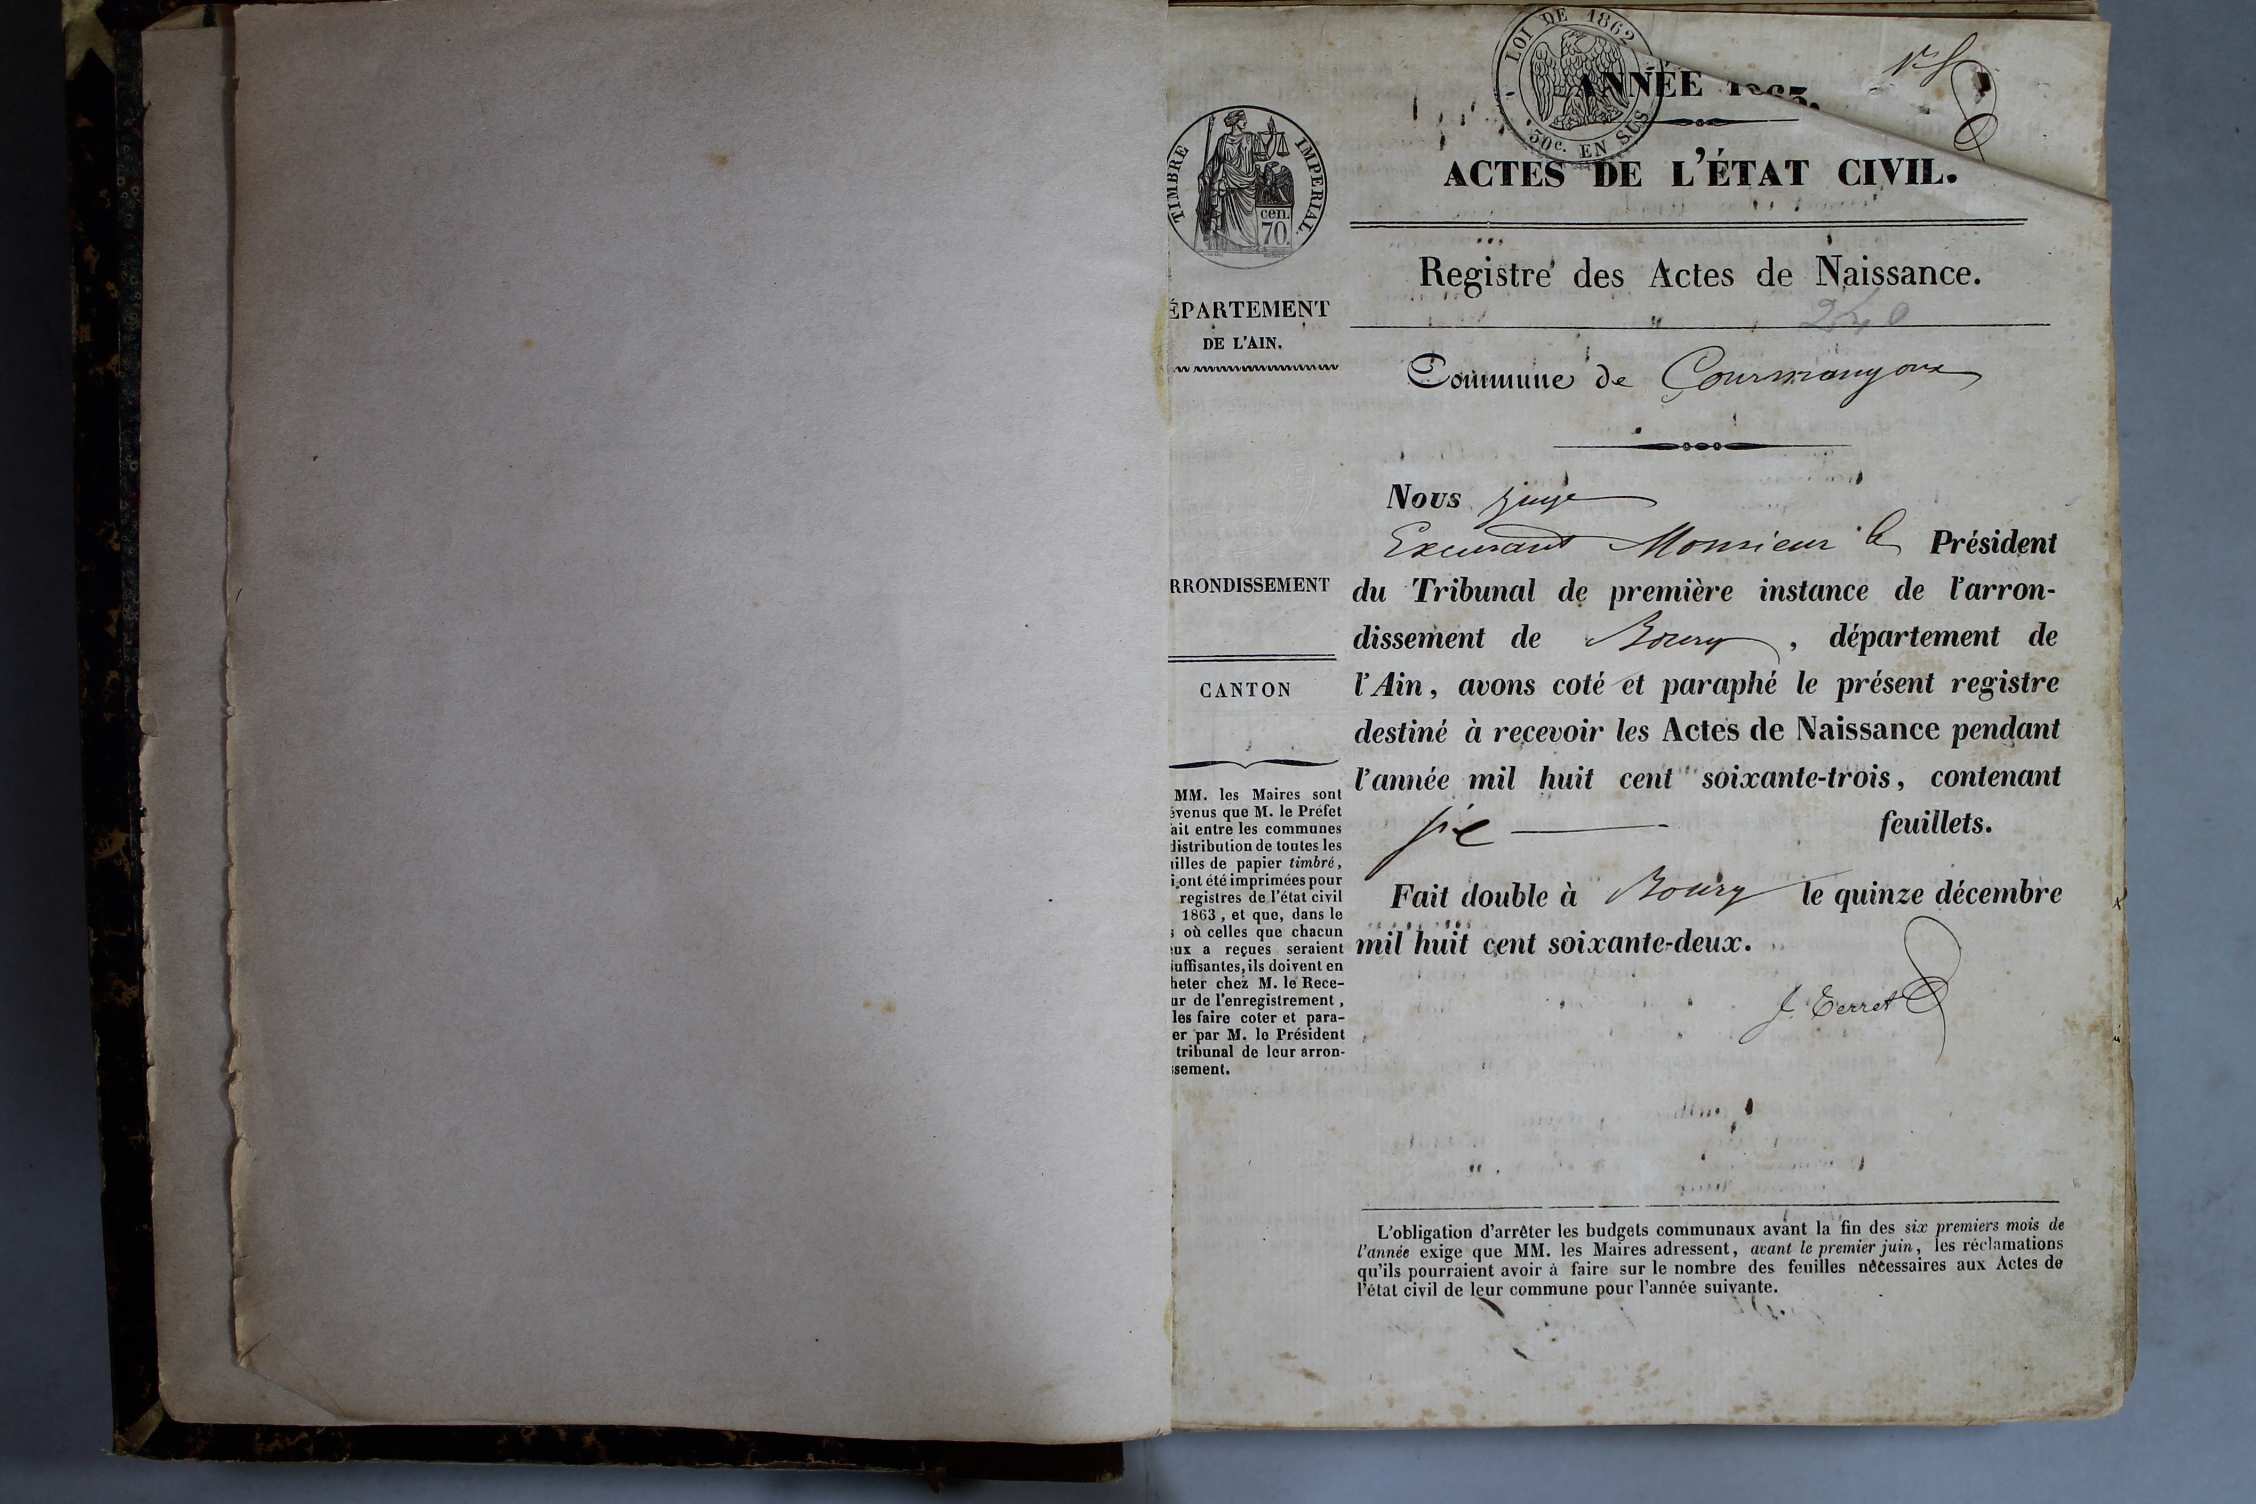 LOI DE 1862
30c. EN SUS
ANNÉE 1863.
ACTES DE L'ÉTAT CIVIL.
Registre des Actes de Naissance.
240
Commune de Courmangoux
Nous juge
Excusant Monsieur le Président
du Tribunal de première instance de l'arron-
dissement de Bourg, département de
l'Ain, avons coté et paraphé le présent registre
destiné à recevoir les Actes de Naissance pendant
l'année mil huit cent soixante-trois, contenant
six feuillets.
Fait double à Bourg le quinze décembre
mil huit cent soixante-deux.
J. Terret
L'obligation d'arrêter les budgets communaux avant la fin des six premiers mois de
l'année exige que MM. les Maires adressent, avant le premier juin, les réclamations
qu'ils pourraient avoir à faire sur le nombre des feuilles nécessaires aux Actes de
l'état civil de leur commune pour l'année suivante.
TIMBRE IMPERIAL.
cen.
70.
ÉPARTEMENT
DE L'AIN.
RRONDISSEMENT
CANTON
MM. les Maires sont
évenus que M. le Préfet
ait entre les communes
distribution de toutes les
illes de papier timbré,
i ont été imprimées pour
registres de l'état civil
1863, et que, dans le
s où celles que chacun
eux a reçues seraient
uffisantes, ils doivent en
heter chez M. le Rece-
ur de l'enregistrement,
les faire coter et para-
er par M. le Président
tribunal de leur arron-
ssement.